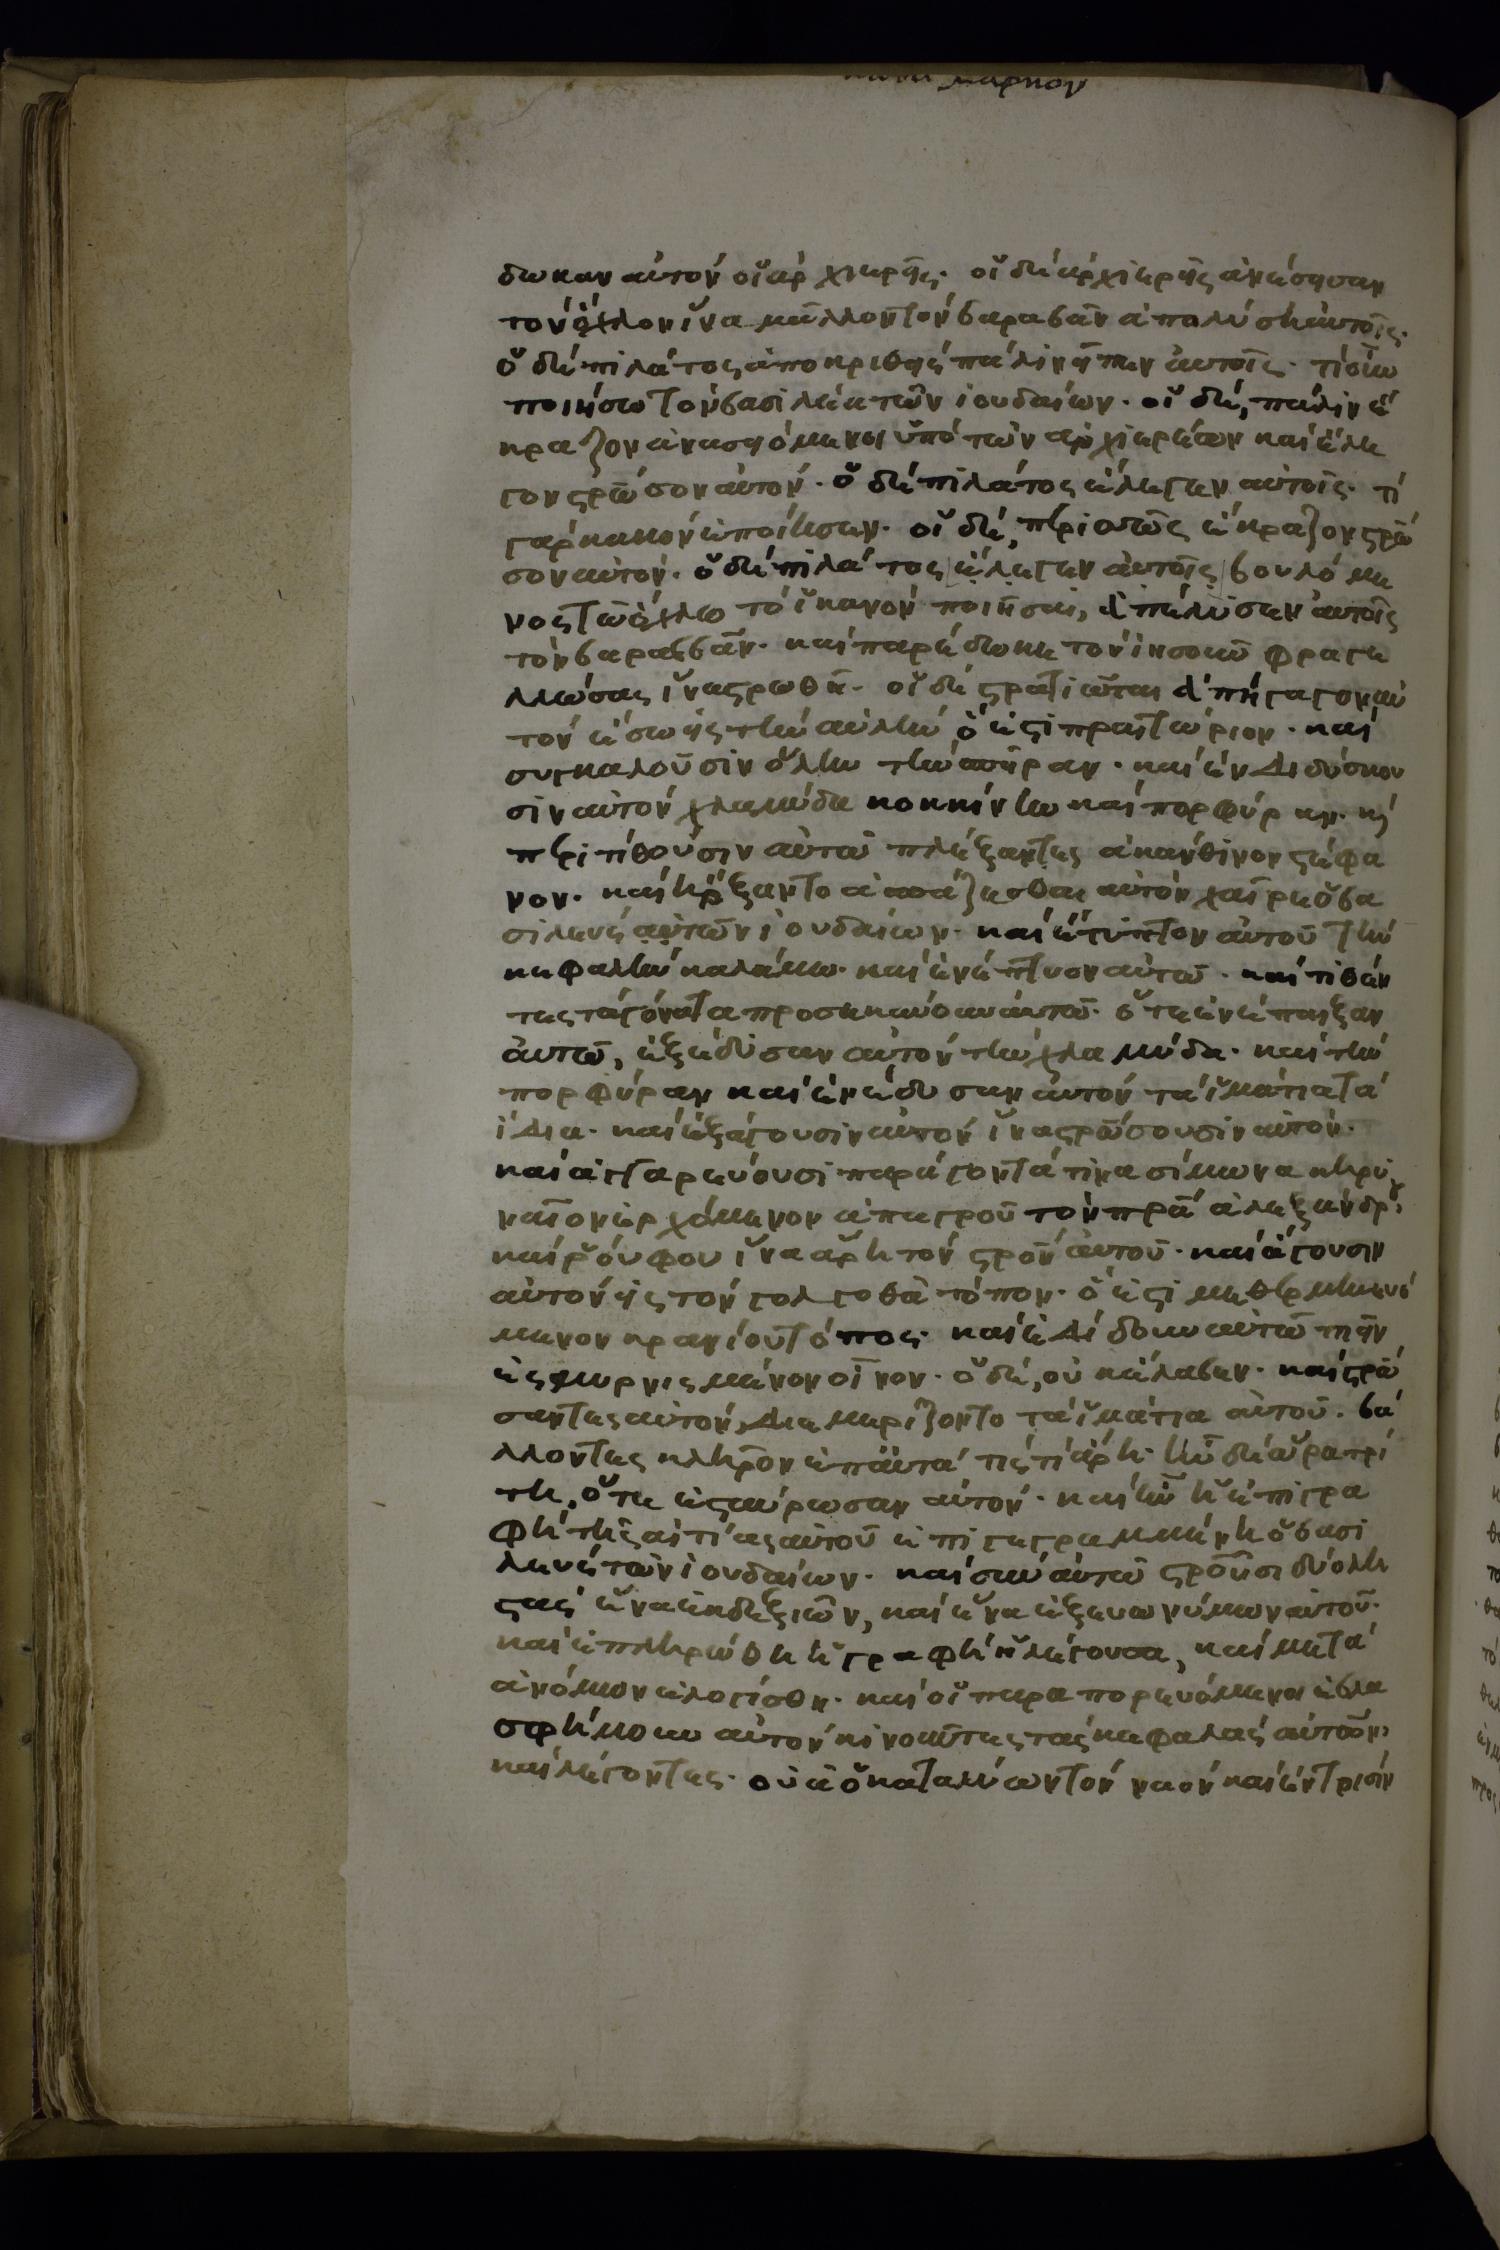 κατὰ μάρκον
δωκαν αὐτὸν οἱ ἀρχιερεῖς· οἱ δὲ ἀρχιερεῖς ἀνέσησαν
τὸν ὄχλον ἵνα μᾶλλον τὸν βαραβᾶν ἀπολύση αὐτοῖς·
ὁ δὲ πιλάτος ἀποκριθεὶς πάλιν εἶπεν αὐτοῖς· τί οὖν
ποιήσω τὸν βασιλέα τῶν ἰουδαίων· οἱ δὲ, πάλιν ἔ
κραζον ἀνασειόμενοι ὑπὸ τῶν ἀρχιερέων καὶ ἔλε
γον ςρῶσον αὐτόν· ὁ δὲ πιλάτος ἔλεγεν αὐτοῖς· τί
γὰρ κακὸν ἐποίησεν· οἱ δὲ, περισσῶς ἔκραζον ςρῶ
σον αὐτόν· ὁ δὲ πιλάτος ἔλεγεν αὐτοῖς βουλόμε
νος τῶ ὄχλω τὸ ἱκανὸν ποιῆσαι, ἀπέλυσεν αὐτοῖς
τὸν βαραββᾶν· καὶ παρέδωκε τὸν ἰησοῦν φραγε
λλώσας ἵνα ςρωθῆ· οἱ δὲ ςρατιῶται ἀπήγαγον αὐ
τὸν ἔσω εἰς τὴν αὐλὴν ὅ ἐςι πραιτώριον· καὶ
συγκαλοῦσιν ὅλην τὴν σπεῖραν· καὶ ἐνδιδύσκου
σιν αὐτὸν χλαμύδα κοκκίνην καὶ πορφύραν· κὶ
περιτιθοῦσιν αὐτῶ πλέξαντες ἀκάνθινον ςέφα
νον· καὶ ἤρξαντο ἀσπάζεσθαι αὐτὸν χαῖρε ὁ βα
σιλεὺς τῶν ἰουδαίων· καὶ ἔτυπτον αὐτοῦ τὴν
κεφαλὴν καλάμω· καὶ ἐνέπτυον αὐτῶ· καὶ τιθέν
τες τὰ γόνατα προσεκύνουν αὐτῶ· ὅτε ἐνέπαιξαν
αὐτῶ, ἐξέδυσαν αὐτὸν τὴν χλαμύδα· καὶ τὴν
πορφύραν καὶ ἐνέδυσαν αὐτὸν τὰ ἱμάτια τὰ
ἴδια· καὶ ἐξάγουσιν αὐτὸν ἵνα ςρώσουσιν αὐτόν·
καὶ ἀγγαρεύουσι παράγοντά τινα σίμωνα κηρυ
ναῖον ἐρχόμενον ἀπ ἀγροῦ τὸν πρα ἀλεξάνδρου
καὶ ῥούφου ἵνα ἄρη τὸν ςρον αὐτοῦ· καὶ ἄγουσιν
αὐτὸν εἰς τὸν γολγοθᾶ τόπον· ὅ ἐςι μεθερμηνευό
μενον κρανίου τόπος· καὶ ἐδίδουν αὐτῶ πιεῖν
ἐςμυρνισμένον οἶνον· ὁ δὲ, οὐκ ἔλαβεν· καὶ ςρώ
σαντες αὐτὸν, διεμερίζοντο τὰ ἱμάτια αὐτοῦ· βά
λλοντες κλῆρον ἐπ αὐτὰ τίς τί ἄρη· ἦν δὲ ὥρα τρί
τη, ὅτε ἐςαύρωσαν αὐτόν· καὶ ἦν ἡ ἐπιγρα
φὴ τῆς αἰτίας αὐτοῦ ἐπιγεγραμμένη ὁ βασι
λεὺς τῶν ἰουδαίων· καὶ σὺν αὐτῶ ςροῦσι δύο λη
ςὰς ἕνα ἐκ δεξιῶν, καὶ ἕνα ἐξ εὐωνύμων αὐτοῦ·
καὶ ἐπληρώθη ἡ γραφὴ ἡ λέγουσα, καὶ μετὰ
ἀνόμων ἐλογίσθη· καὶ οἱ παραπορευόμενοι ἐβλα
σφήμουν αὐτὸν κινοῦντες τὰς κεφαλὰς αὐτῶν,
καὶ λέγοντες· οὐὰ ὁ καταλύων τὸν ναὸν καὶ ἐν τρισὶν